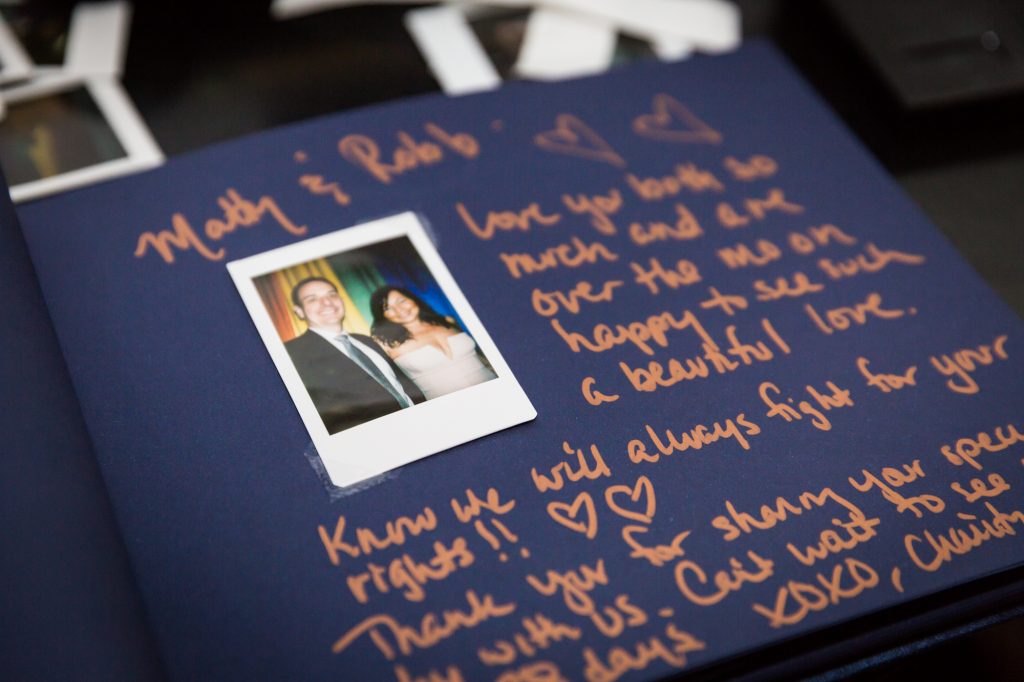 Matty & Robb -
Love you both so
much and are
over the moon
happy to see such
a beautiful love.
Know we will always fight for your
rights!!
Thank you for sharing your
with us. Can't wait to see
days
XOXO,